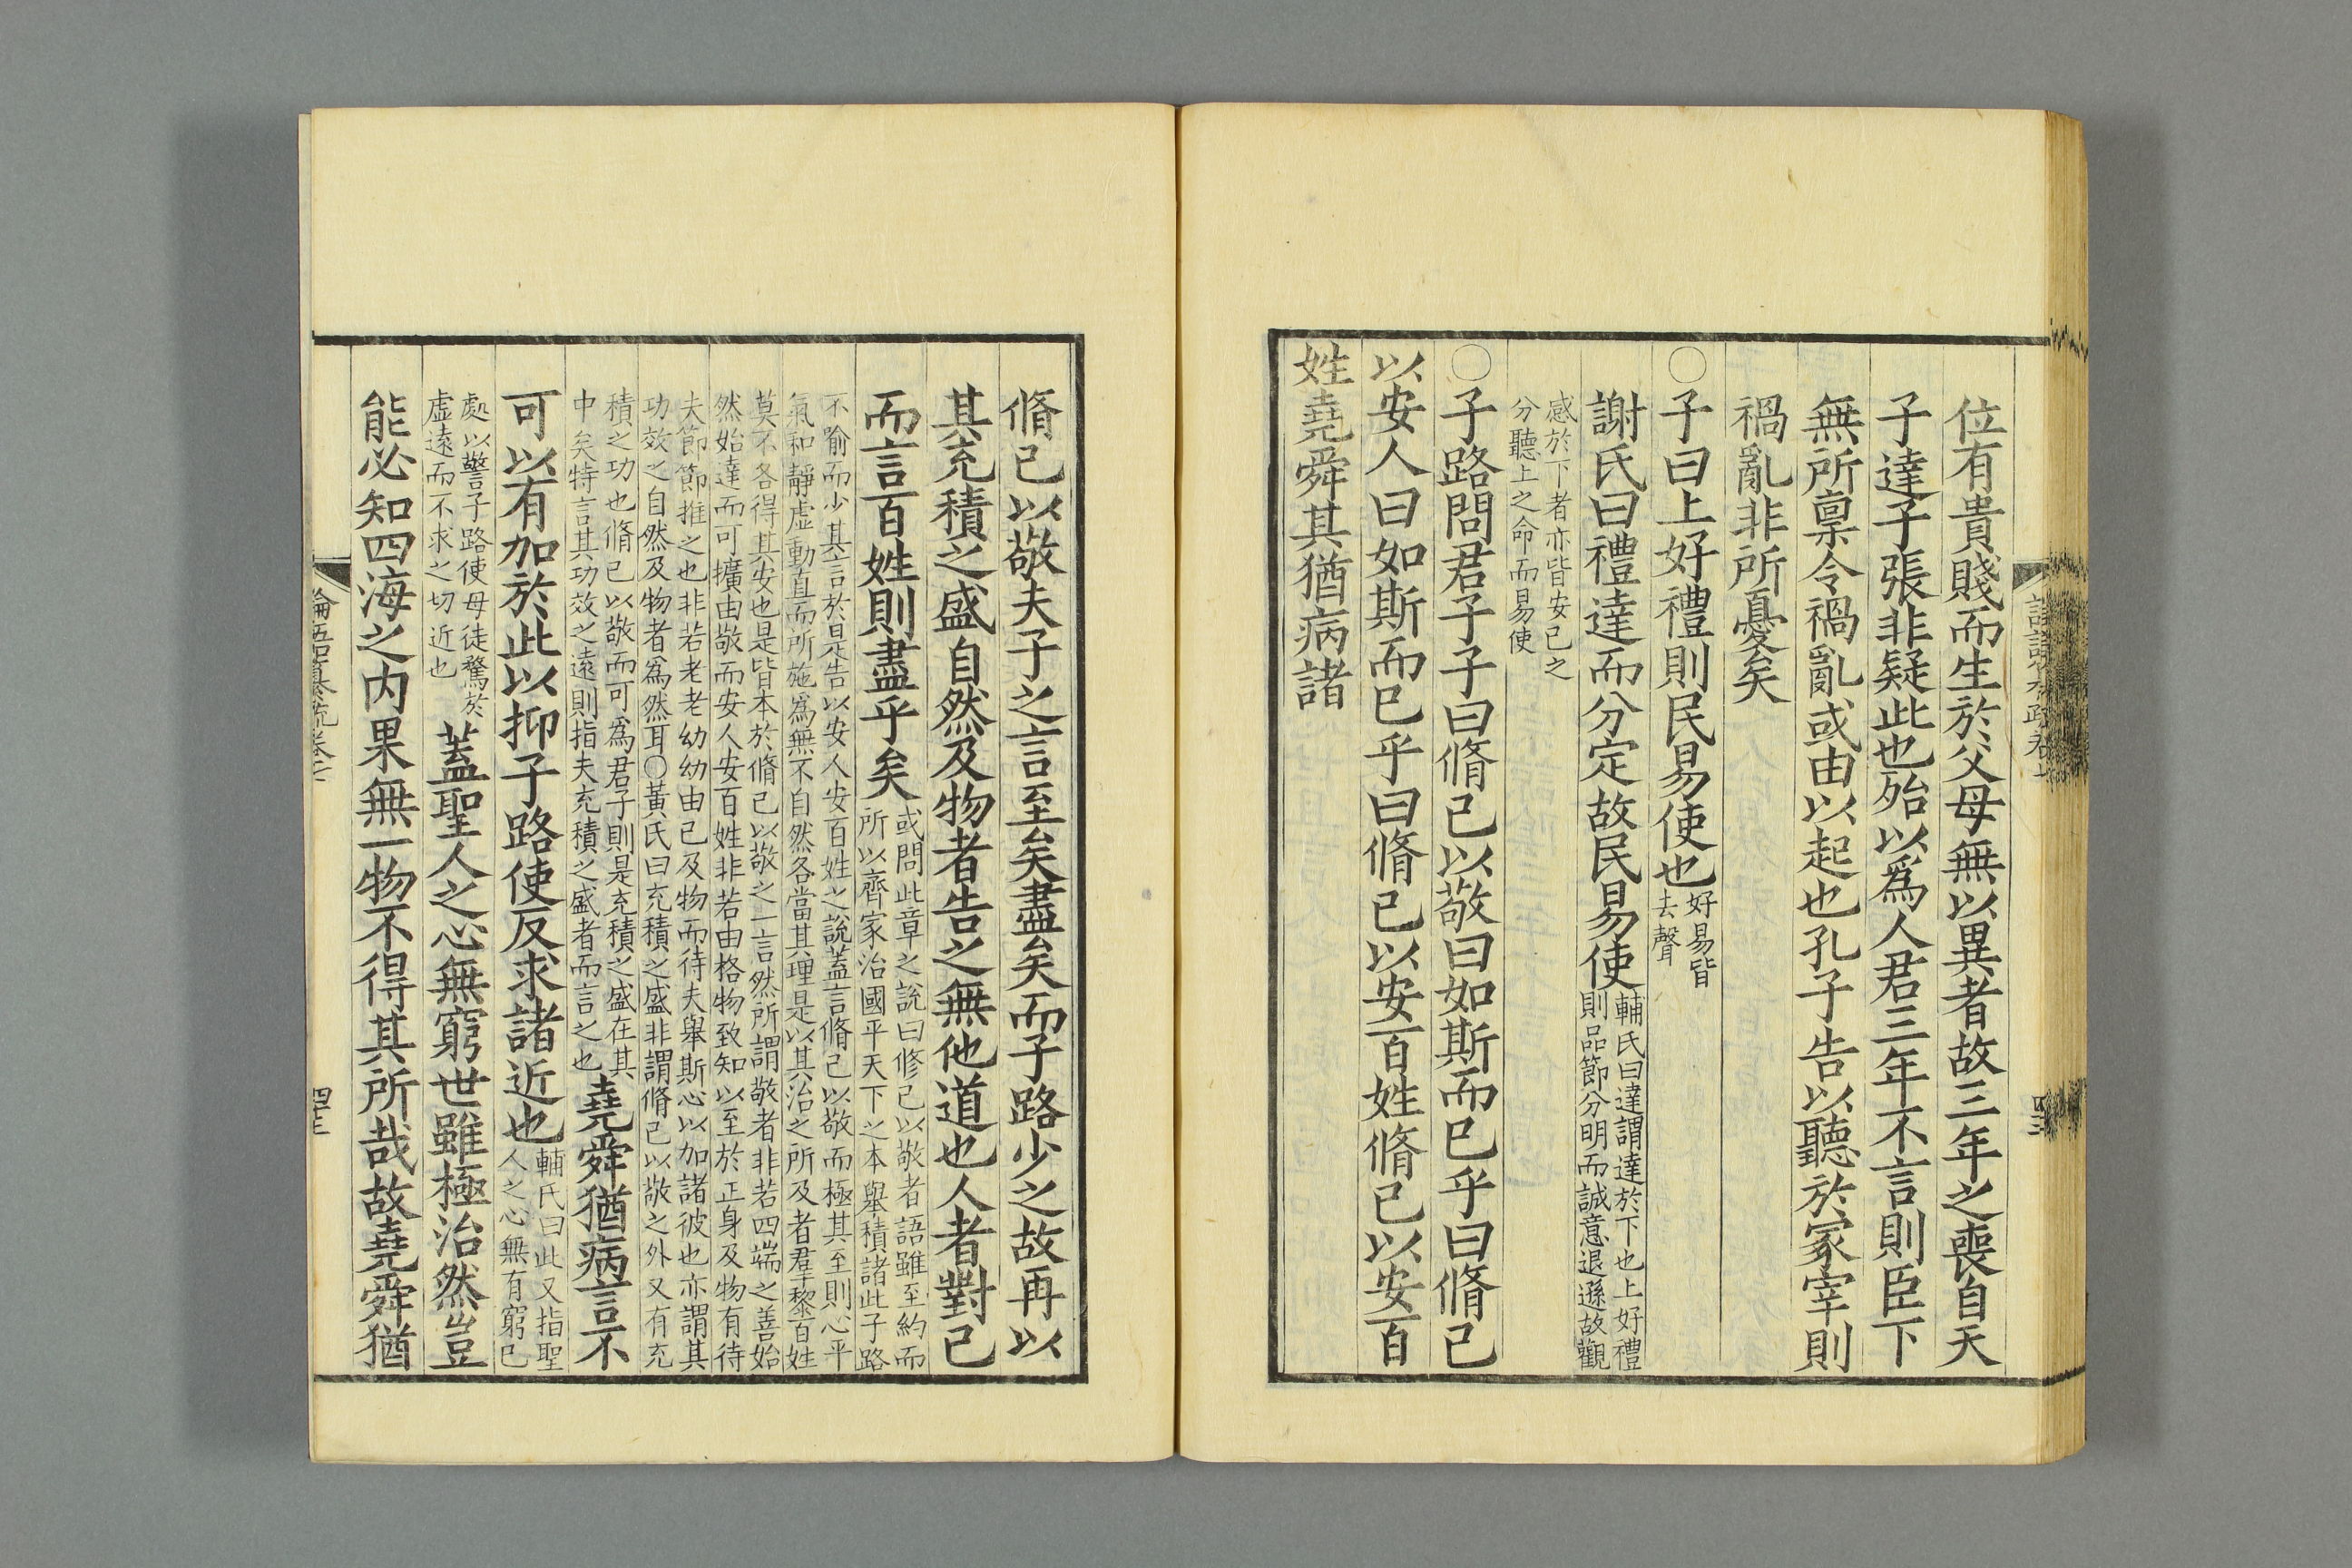 位有貴賤而生於父母無以異者故三年之喪自天
子達子張非疑此也殆以爲人君三年不言則臣下
無所稟令禍亂或由以起也孔子告以聽於冢宰則
禍亂非所憂矣
○子曰上好禮則民易使也好易皆去聲
謝氏曰禮達而分定故民易使輔氏曰達謂達於下也上好禮則品節分明而誠意退遜故觀
感於下者亦皆安已之分聽上之命而易使
○子路問君子子曰脩已以敬曰如斯而已乎曰脩已
以安人曰如斯而已乎曰脩已以安百姓脩已以安百
姓堯舜其猶病諸
脩已以敬夫子之言至矣盡矣而子路少之故再以
其充積之盛自然及物者告之無他道也人者對已
而言百姓則盡乎矣或問此章之說曰修已以敬者語雖至約而所以齊家治國平天下之本舉積諸此子路
不喻而少其言於是告以安人安百姓之說蓋言脩已以敬而極其至則心平氣和靜虛動直而所施爲無不自然各當其理是以其治之所及者羣黎百姓
莫不各得其安也是皆本於脩已以敬之一言然所謂敬者非若四端之善始然始達而可擴由敬而安人安百姓非若由格物致知以至於正身及物有待
夫節節推之也非若老老幼幼由已及物而待夫舉斯心以加諸彼也亦謂其功效之自然及物者爲然耳○黃氏曰充積之盛非謂脩已以敬之外又有充
積之功也脩已以敬而可爲君子則是充積之盛在其中矣特言其功效之遠則指夫充積之盛者而言之也堯舜猶病言不
可以有加於此以抑子路使反求諸近也輔氏曰此又指聖人之心無有窮已
處以警子路使毋徒騖於虛遠而不求之切近也蓋聖人之心無窮世雖極治然豈
能必知四海之内果無一物不得其所哉故堯舜猶
論語纂疏卷七
四十三